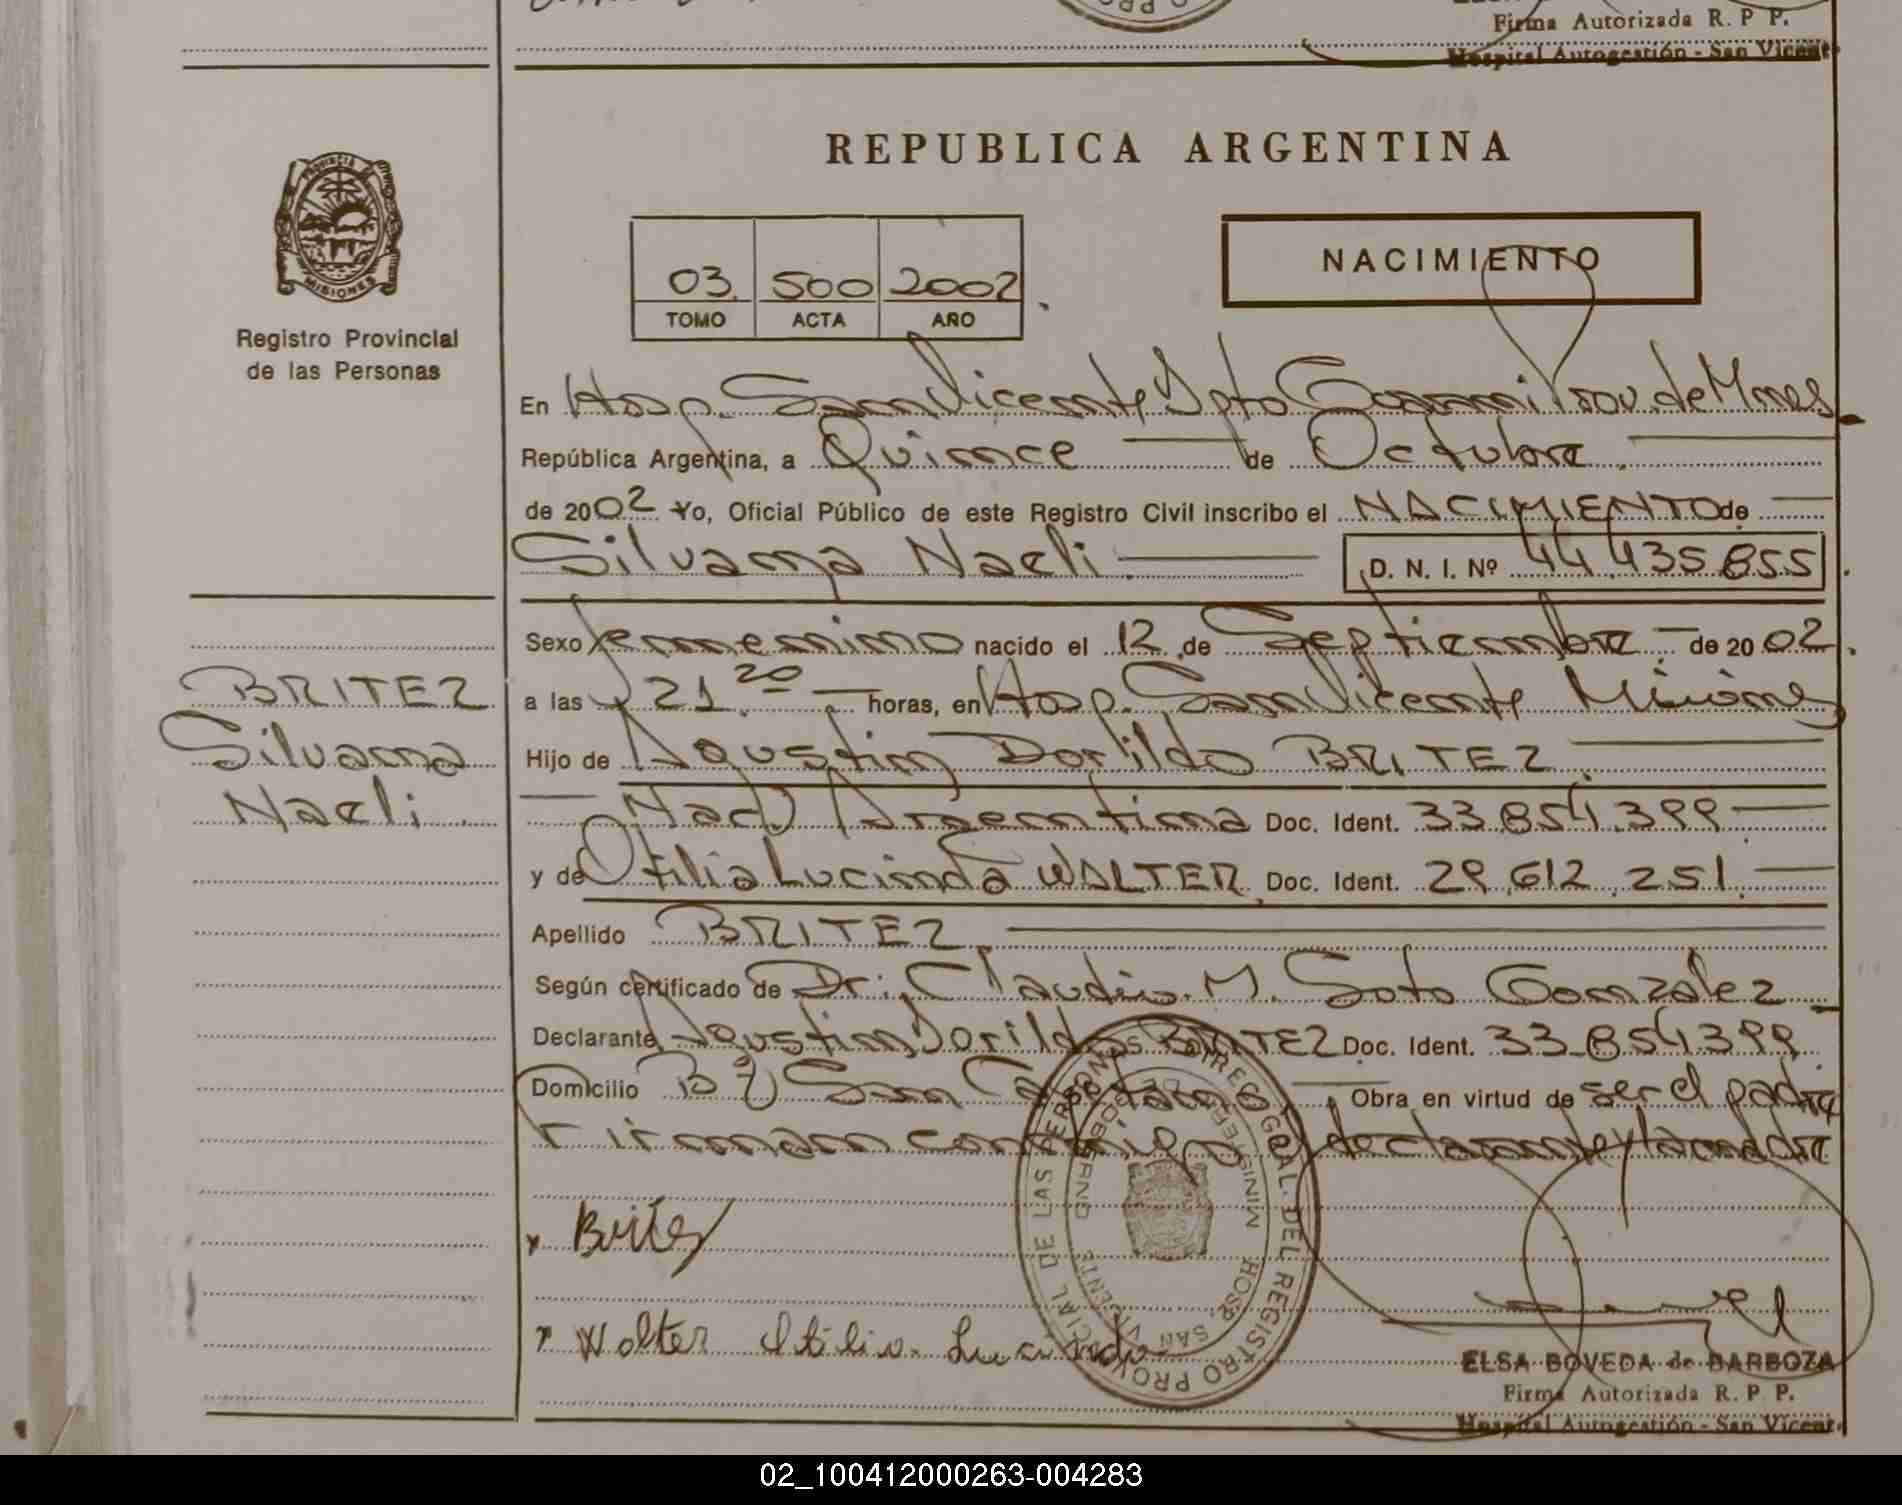 Firma Autorizada R. P P.
Hospital Autogestión - San Vicente
REPUBLICA ARGENTINA
PROVINCIA DE
MISIONES
Registro Provincial
de las Personas
NACIMIENTO
03 500 2002
TOMO ACTA AÑO
En Hosp. San Vicente Dpto Guaraní Prov. de Mnes
República Argentina, a Quince de Octubre
de 2002 Yo, Oficial Público de este Registro Civil inscribo el NACIMIENTO de
Silvana Naeli D. N. I. Nº 44.435.855
Sexo femenino nacido el 12 de Septiembre de 2002
a las 21.20 horas, en Hosp. San Vicente Misiones
BRITEZ
Silvana
Naeli
Hijo de Agustin Dorildo BRITEZ
Nac. Argentina Doc. Ident. 33.854.399
y de Otilia Lucinda WALTER Doc. Ident. 29.612.251
Apellido BRITEZ
Según certificado de Dr. Claudio M. Soto Gonzalez
Declarante Agustin Dorildo BRITEZ Doc. Ident. 33.854.399
Domicilio Bº San Cayetano Obra en virtud de ser el padre
Firman conmigo el declarante y la madre
x Britez
x Walter Otilia Lucinda
DIR. GRAL. DEL REGISTRO PROVINCIAL DE LAS PERSONAS
HOSP. SAN VICENTE
ELSA BOVEDA de BARBOZA
Firma Autorizada R. P P.
Hospital Autogestión - San Vicente
02_100412000263-004283